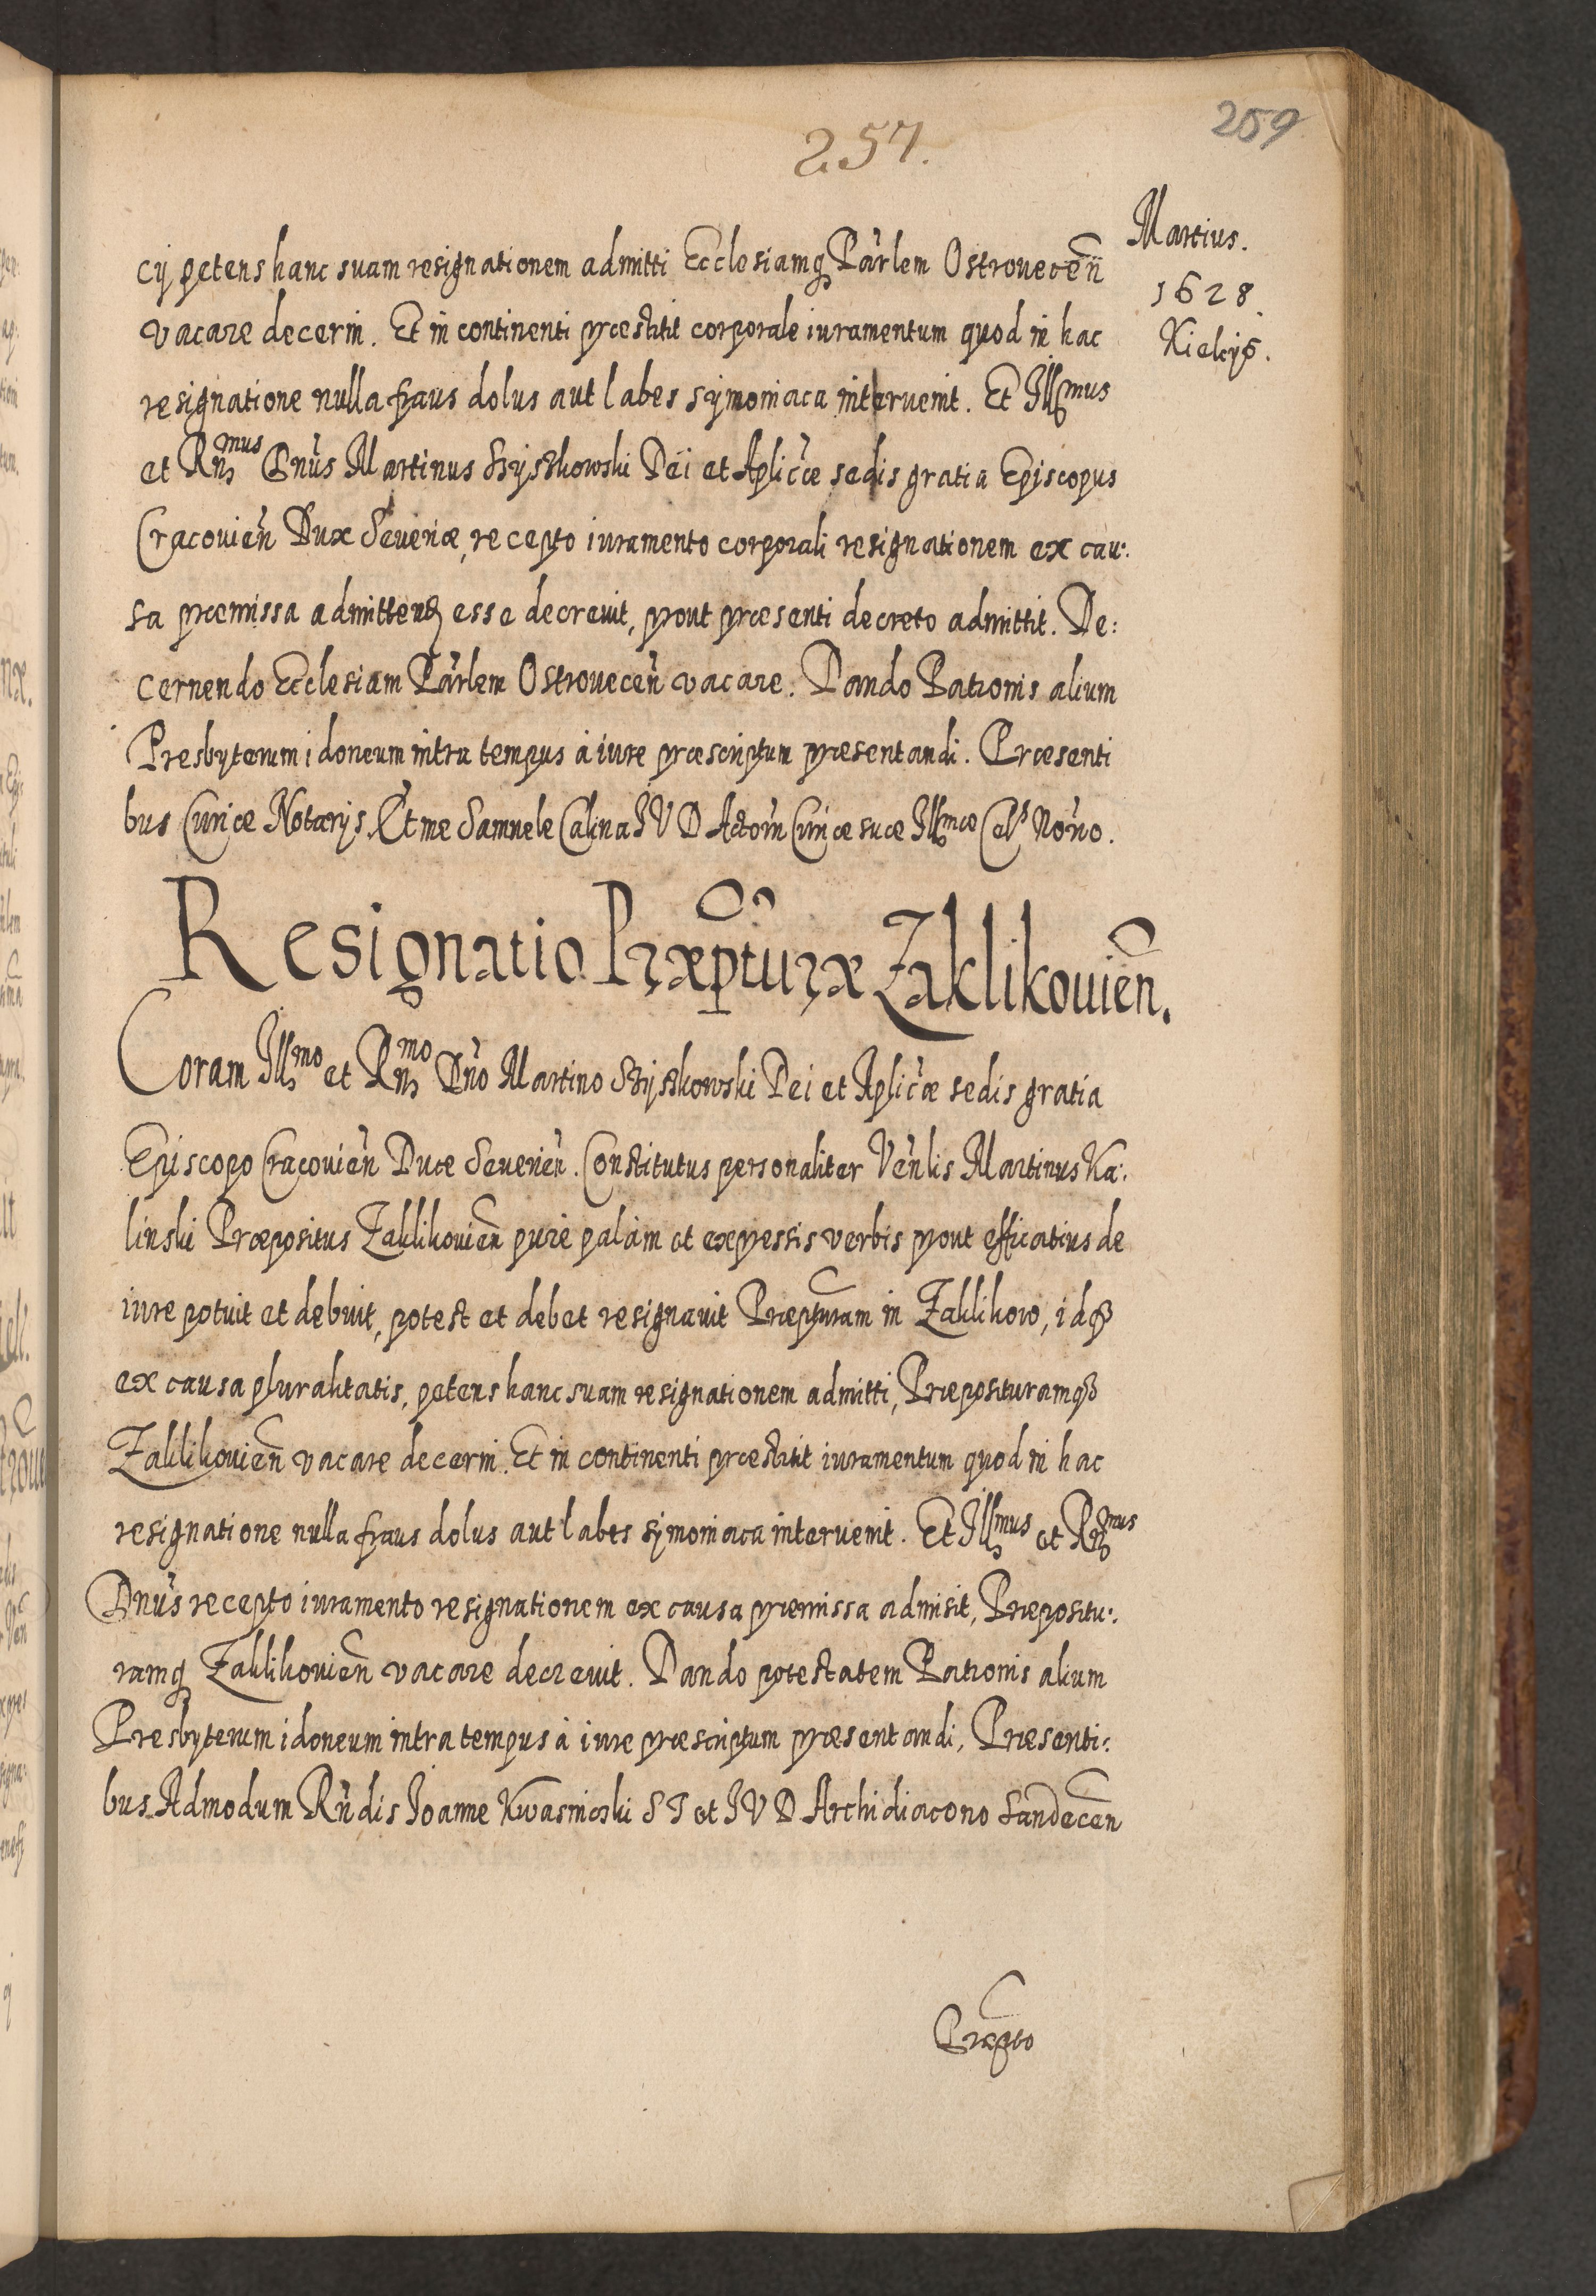 257.
259
Martius.
1628.
Kielcijs.
cij petens hanc suam resignationem admitti Ecclesiamq Parlem Ostrovecen
vacare decerni. Et in continenti præstitit corporale iuramentum quod in hac
resignatione nulla fraus dolus aut labes sijmoniaca intervenit. Et Illmus
et Rnmus Dnus Martinus Szyszkowski Dei et Aplicæ sedis gratia Episcopus
Cracovien Dux Severiæ, recepto iuramento corporali resignationem ex cau:
sa præmissa admittend esse decrevit, prout præsenti decreto admittit. De:
cernendo Ecclesiam Parlem Ostrovecen vacare. Dando Patronis alium
Presbyterum idoneum intra tempus à iure præscriptum præsentandi. Præsenti
bus Curiæ Notarijs. Et me Samuele Calina IVD Actorn Curiæ suæ Illmæ Cels Norio.
Resignatio Præptturæ Zaklikovien.
Coram Illmo et Rnmo Dno Martino Szyszkowski Dei et Aplicæ sedis gratia
Episcopo Cracovien Duce Severien. Constitutus personaliter Venlis Martinus Ka:
linski Præpositus Zaklikovien purè palàm et expressis verbis prout efficatius de
iure potuit et debuit, potest et debet resignavit Præpturam in Zaklikow, idq3
ex causa pluralitatis, petens hanc suam resignationem admitti, Præposituramq3
Zaklikovien vacare decerni. Et in continenti præstitit iuramentum quod in hac
resignatione nulla fraus dolus aut labes sijmoniaca intervenit. Et Illmus et Rnmus
Dnus recepto iuramento resignationem ex causa præmissa admisit, Præpositu:
ramq Zaklikovien vacare decrevit. Dando potestatem Patronis alium
Presbyterum idoneum intra tempus à iure præscriptum præsentandi, Præsenti:
bus Admodum Rndis Joanne Kwasnicski S T et I V D Archidiacono Sandecen
Præpto